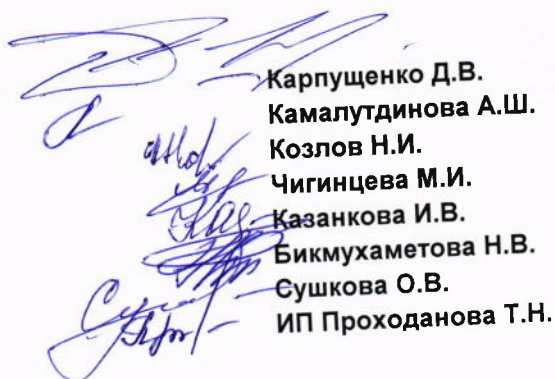 Карпущенко Д.В.
Камалутдинова А.Ш.
Козлов Н.И.
Чигинцева М.И.
Казанкова И.В.
Бикмухаметова Н.В.
Сушкова О.В.
ИП Проходанова Т.Н.